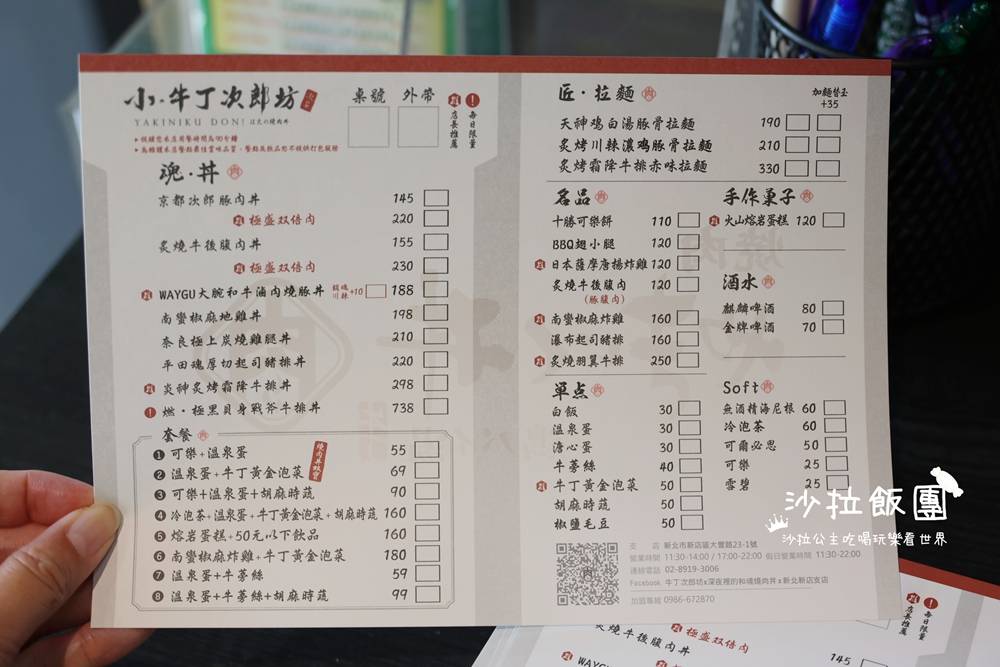 小·牛丁次郎坊
YAKINIKU DON! 深夜の燒肉丼
桌號 外帶
店長推薦
每日限量
魂·丼
京都次郎豚肉丼 145
極盛双倍肉 220
炙燒牛後腹肉丼 155
極盛双倍肉 230
WAYGU大腕和牛滷肉燒豚丼 +10 188
南蠻椒麻地雞丼 198
奈良極上炭燒雞腿丼 210
平田魂厚切起司豬排丼 220
炎神炙烤霜降牛排丼 298
燃·極黑貝身戰斧牛排丼 738
套餐
❶ 可樂+溫泉蛋 55
❷ 溫泉蛋+牛丁黃金泡菜 69
❸ 可樂+溫泉蛋+胡麻時蔬 90
❹ 冷泡茶+溫泉蛋+牛丁黃金泡菜+胡麻時蔬 160
❺ 熔岩蛋糕+50元以下飲品 160
❻ 南蠻椒麻炸雞+牛丁黃金泡菜 180
❼ 溫泉蛋+牛蒡絲 59
❽ 溫泉蛋+牛蒡絲+胡麻時蔬 99
匠·拉麵
加麵替玉
+35
天神鸡白湯豚骨拉麵 190
炙烤川辣濃鸡豚骨拉麵 210
炙烤霜降牛排赤味拉麵 330
名品
十勝可樂餅 110
BBQ翅小腿 120
日本薩摩唐揚炸雞 120
炙燒牛後腹肉 120
(豚腹肉)
南蠻椒麻炸雞 160
瀑布起司豬排 160
炙燒羽翼牛排 250
单点
白飯 30
溫泉蛋 30
溏心蛋 30
牛蒡絲 40
牛丁黃金泡菜 50
胡麻時蔬 50
椒鹽毛豆 50
手作菓子
火山熔岩蛋糕 120
酒水
麒麟啤酒 80
金牌啤酒 70
Soft
無酒精海尼根 60
冷泡茶 60
可爾必思 50
可樂 25
雪碧 25
支 店 新北市新店區大豐路23-1號
營業時間 11:30-14:00 / 17:00-22:00 假日營業時間 11:30-22:00
連絡電話 02-8919-3006
Facebook 牛丁次郎坊x深夜裡的和魂燒肉丼x新北新店支店
加盟專線 0986-672870
沙拉飯團
沙拉公主吃喝玩樂看世界
店長推薦
每日限量
炙燒牛後腹肉丼
極盛双倍肉
145
WAYGU